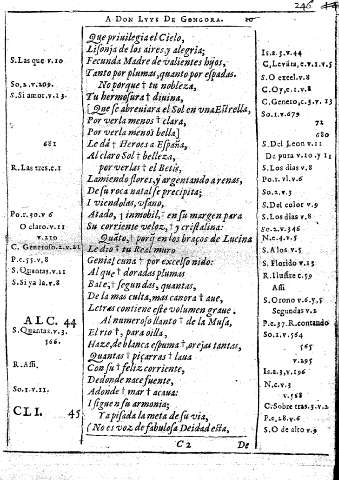 A DON LVYS DE GONGORA.
246 44
Que priuilegia el Cielo,
Lisonja de los aires y alegria;
Fecunda Madre de valientes hijos,
Tanto por plumas, quanto por espadas.
No porque † tu nobleza,
Tu hermosura † diuina,
[Que se abreuiara el Sol en vna Estrella,
Por verla menos † clara,
Por verla menos bella]
Le dà † Heroes a España,
Al claro Sol † belleza,
por verlas † el Betis,
Lamiendo flores, y argentando arenas,
De su roca natal se precipita;
I viendolas, vfano,
Atado, † inmobil, en su margen para
Su corriente veloz, † y cristalina:
Quãto, † porq̃ en los braços de Lucina
Le dio † tu Real muro
Genial cuna † por excelso nido:
Al que † doradas plumas
Bate, † segundas, quantas,
De la mas culta, mas canora † aue,
Letras contiene este volumen graue.
Al numeroso llanto † de la Musa,
El rio †, para oilla,
Haze, de blanca espuma †, orejas tantas,
Quantas † piçarras † laua
Con su † feliz corriente,
Dedonde nace fuente,
Adonde † mar † acaua:
I siguen su armonia;
Ya pisada la meta de su via,
(No es voz de fabulosa Deidad esta,
C2
De
S. Las que v.10
So.2.v.209.
S. Si amor. v.13.
681
R. Las tres. c.1
Po.1.30.v.6
O claro. v.11
v.210
C. Generoso.2.v.21
P.c.55.v.8
S. Quantas. v.11
S. Si ya la. v.8
ALC. 44
S. Quantas. v.3.
566.
R. Assi.
So.1.v.11.
CLI. 45
Is.2.3.v.44
C, Leuãta, e.v.1.v.5
S. O excel.v.8
C. Oy, e.1.v.8
C. Genero, c.3.v.13
So.1.v.679
72
680
S. Del Leon v.11
De pura v.10.y 11
S. Los dias v.8
Po.1.vl.v.6
So.2.v.3
S. Del color v.9
S. Los dias v.8
So.2.v.346
N.c.4.v.5
S. A los v.5
S. Florido v.13
R. Ilustre c.59
Assi
S. Orono v.6.y 5.
Segundas v.2
P.c.37. R. contando
So.1.v.564
565
v.295
Is.2.3.v.196
N.c.v.3
v.568
C. Sobre tras.3.v.2
P.c.28.v.6
S. O de alto v.9